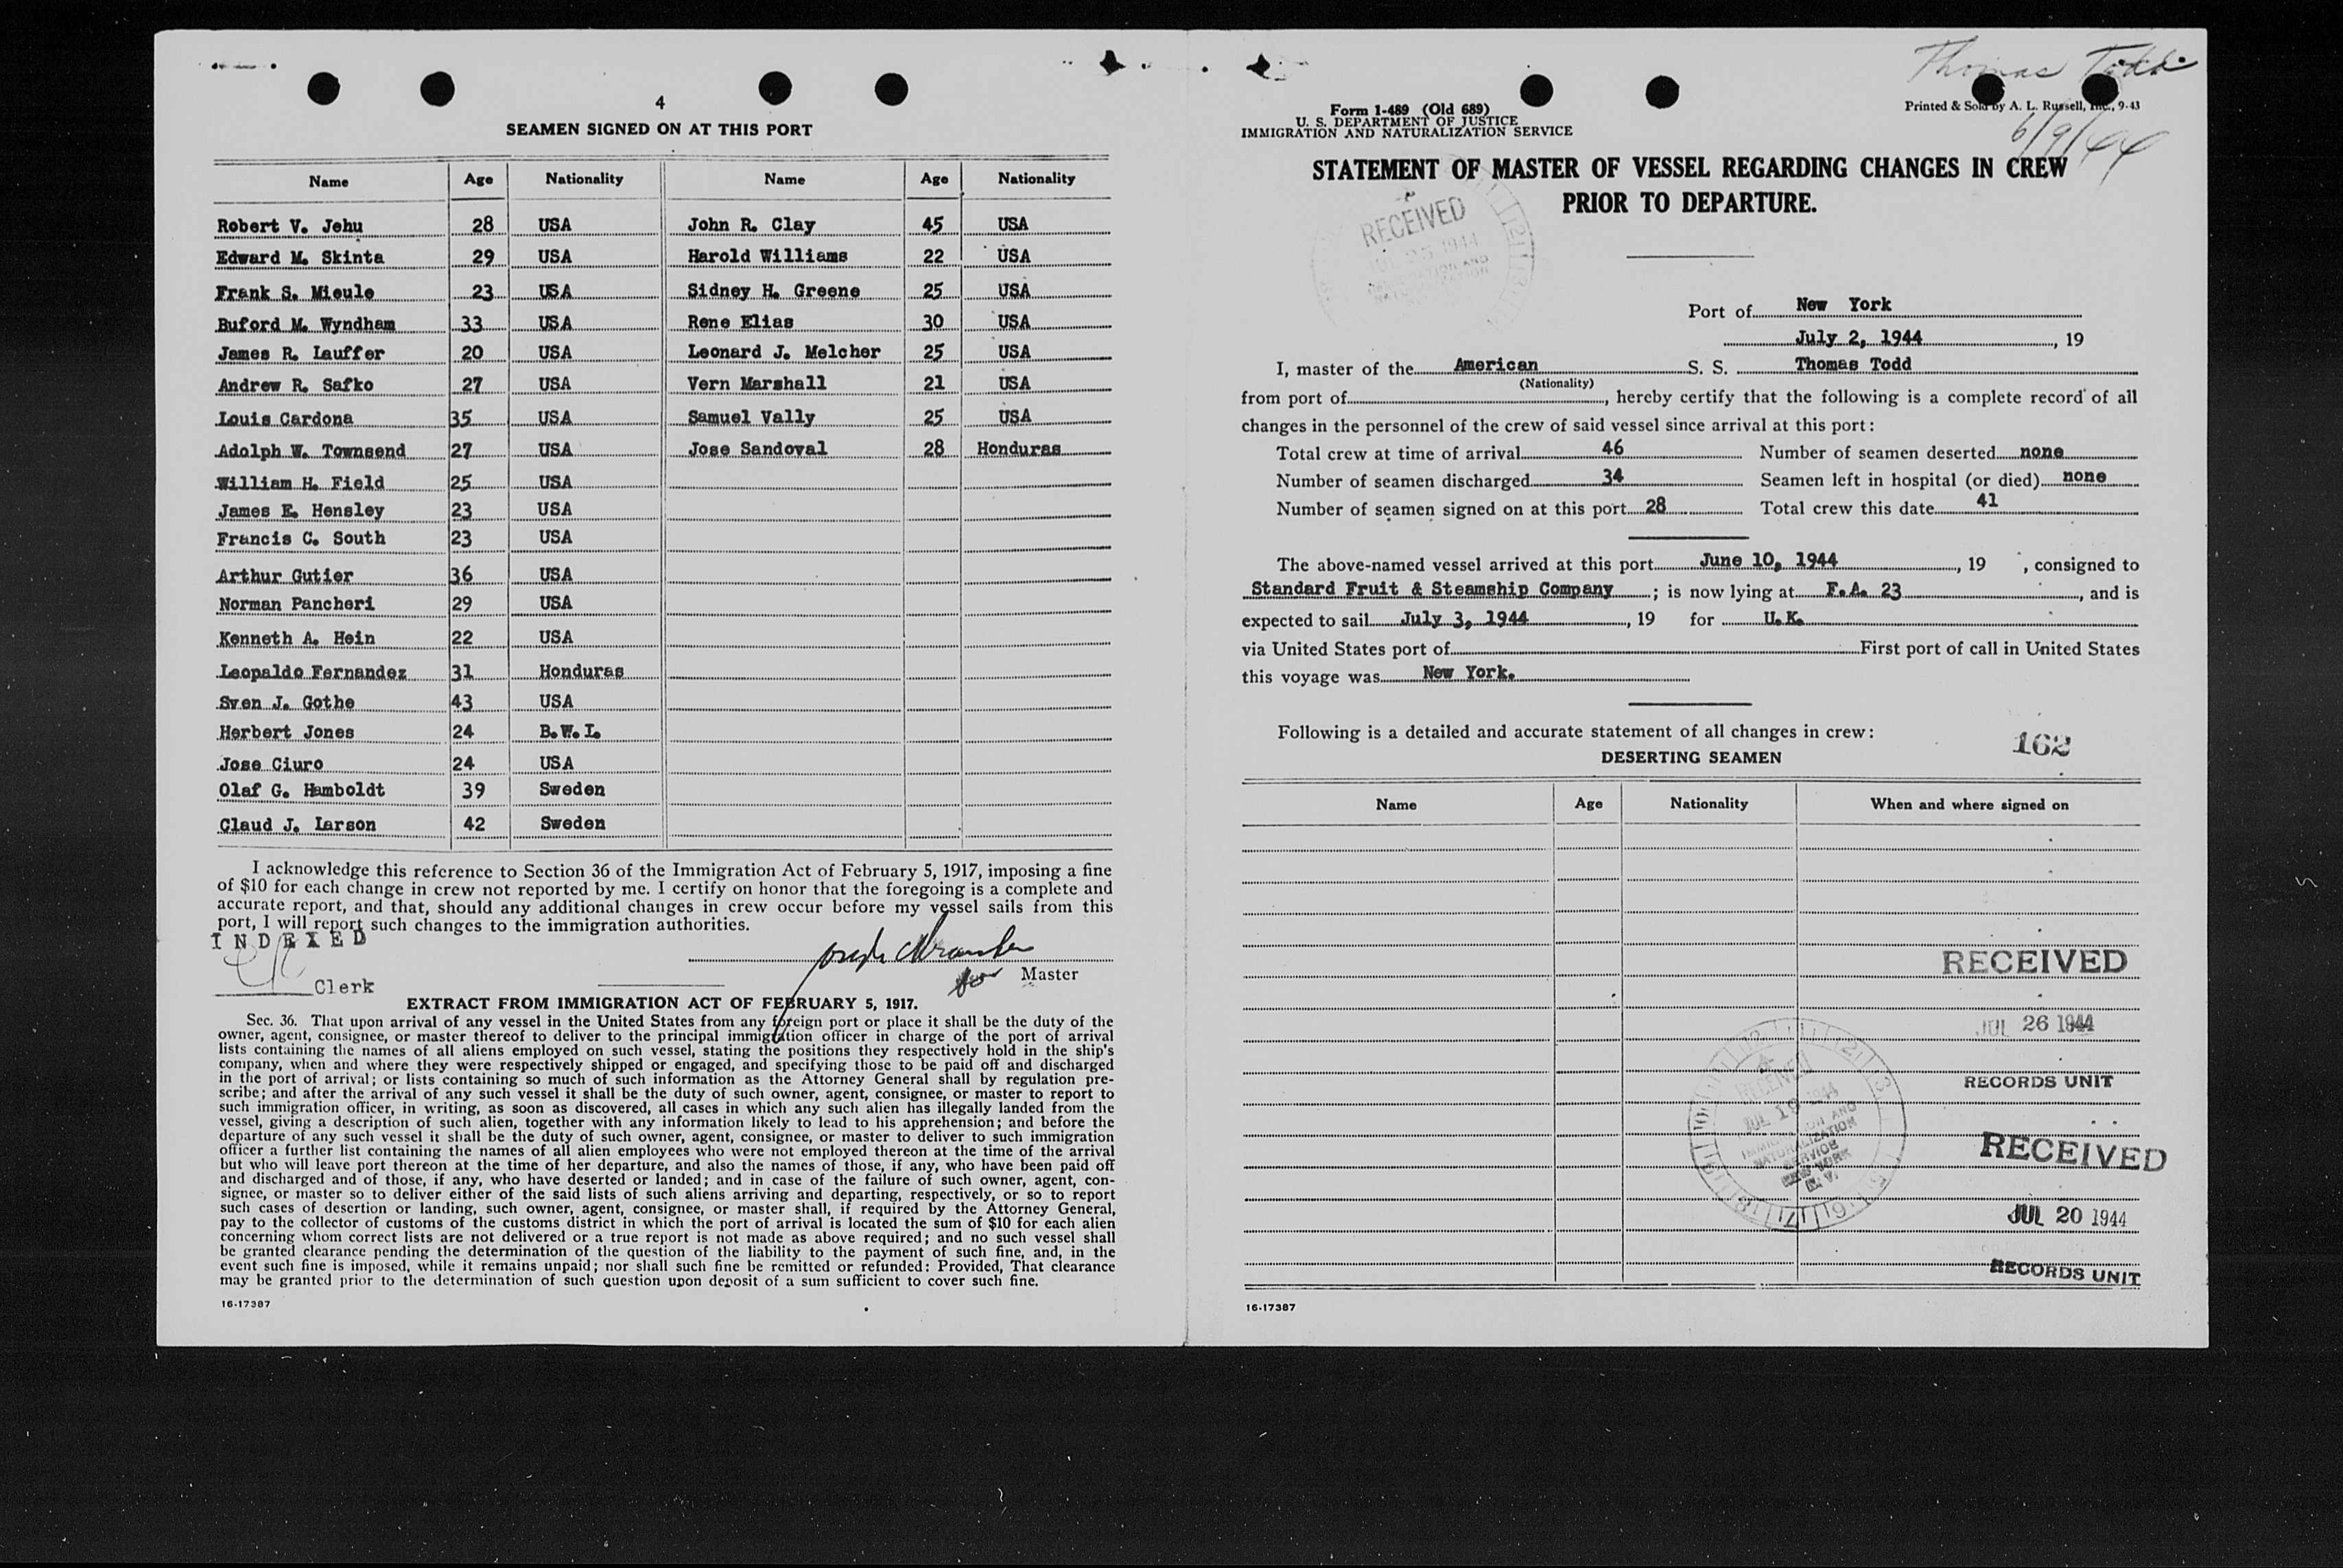 4
SEAMEN SIGNED ON AT THIS PORT
Name Age Nationality Name Age Nationality
Robert V. Jehu 28 USA John R. Clay 45 USA
Edward M. Skinta 29 USA Harold Williams 22 USA
Frank S. Mieule 23 USA Sidney H. Greene 25 USA
Buford M. Wyndham 33 USA Rene Elias 30 USA
James R. Lauffer 20 USA Leonard J. Melcher 25 USA
Andrew R. Safko 27 USA Vern Marshall 21 USA
Louis Cardona 35 USA Samuel Vally 25 USA
Adolph W. Townsend 27 USA Jose Sandoval 28 Honduras
William H. Field 25 USA
James E. Hensley 23 USA
Francis C. South 23 USA
Arthur Gutier 36 USA
Norman Pancheri 29 USA
Kenneth A. Hein 22 USA
Leopaldo Fernandez 31 Honduras
Sven J. Gothe 43 USA
Herbert Jones 24 B.W.I.
Jose Ciuro 24 USA
Olaf G. Hamboldt 39 Sweden
Claud J. Larson 42 Sweden
I acknowledge this reference to Section 36 of the Immigration Act of February 5, 1917, imposing a fine
of $10 for each change in crew not reported by me. I certify on honor that the foregoing is a complete and
accurate report, and that, should any additional changes in crew occur before my vessel sails from this
port, I will report such changes to the immigration authorities.
INDEXED
for Master
Clerk
EXTRACT FROM IMMIGRATION ACT OF FEBRUARY 5, 1917.
Sec. 36. That upon arrival of any vessel in the United States from any foreign port or place it shall be the duty of the
owner, agent, consignee, or master thereof to deliver to the principal immigration officer in charge of the port of arrival
lists containing the names of all aliens employed on such vessel, stating the positions they respectively hold in the ship's
company, when and where they were respectively shipped or engaged, and specifying those to be paid off and discharged
in the port of arrival; or lists containing so much of such information as the Attorney General shall by regulation pre-
scribe; and after the arrival of any such vessel it shall be the duty of such owner, agent, consignee, or master to report to
such immigration officer, in writing, as soon as discovered, all cases in which any such alien has illegally landed from the
vessel, giving a description of such alien, together with any information likely to lead to his apprehension; and before the
departure of any such vessel it shall be the duty of such owner, agent, consignee, or master to deliver to such immigration
officer a further list containing the names of all alien employees who were not employed thereon at the time of the arrival
but who will leave port thereon at the time of her departure, and also the names of those, if any, who have been paid off
and discharged and of those, if any, who have deserted or landed; and in case of the failure of such owner, agent, con-
signee, or master so to deliver either of the said lists of such aliens arriving and departing, respectively, or so to report
such cases of desertion or landing, such owner, agent, consignee, or master shall, if required by the Attorney General,
pay to the collector of customs of the customs district in which the port of arrival is located the sum of $10 for each alien
concerning whom correct lists are not delivered or a true report is not made as above required; and no such vessel shall
be granted clearance pending the determination of the question of the liability to the payment of such fine, and, in the
event such fine is imposed, while it remains unpaid; nor shall such fine be remitted or refunded: Provided, That clearance
may be granted prior to the determination of such question upon deposit of a sum sufficient to cover such fine.
16-17387
Thomas Todd
Form 1-489 (Old 689)
U. S. DEPARTMENT OF JUSTICE
IMMIGRATION AND NATURALIZATION SERVICE
Printed & Sold by A. L. Russell, Inc., 9-43
6/9/44
STATEMENT OF MASTER OF VESSEL REGARDING CHANGES IN CREW
PRIOR TO DEPARTURE.
RECEIVED
Port of New York
July 2, 1944, 19
I, master of the American S. S. Thomas Todd
(Nationality)
from port of , hereby certify that the following is a complete record of all
changes in the personnel of the crew of said vessel since arrival at this port:
Total crew at time of arrival 46 Number of seamen deserted none
Number of seamen discharged 34 Seamen left in hospital (or died) none
Number of seamen signed on at this port 28 Total crew this date 41
The above-named vessel arrived at this port June 10, 1944, 19 , consigned to
Standard Fruit & Steamship Company ; is now lying at F.A. 23, and is
expected to sail July 3, 1944, 19 for U.K.
via United States port of First port of call in United States
this voyage was New York.
Following is a detailed and accurate statement of all changes in crew:
162
DESERTING SEAMEN
Name Age Nationality When and where signed on
RECEIVED
JUL 26 1944
RECORDS UNIT
RECEIVED
JUL 19 1944
IMMIGRATION AND
NATURALIZATION
SERVICE
NEW YORK
N. Y.
RECEIVED
JUL 20 1944
RECORDS UNIT
16-17387